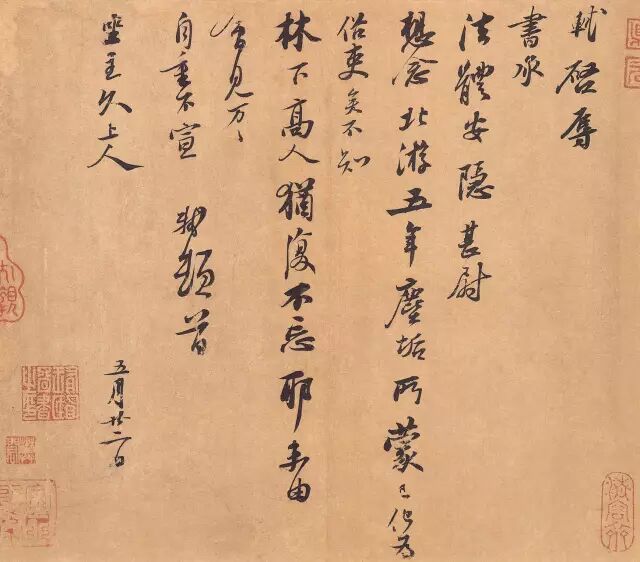 軾啓辱
書承
法體安隱甚尉
想念北游五年塵垢所蒙已化為
俗吏矣不知
林下高人猶復不忘耶未由
會見万〻
自重不宣　軾頓首
坐主久上人
五月廿二日